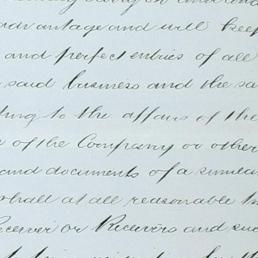 advantage and will keep
and perfect entries of all
said business and the sa
ting to the affairs of the
of the Company or other
and documents of a similar
shall at all reasonable
Receiver or Receivers and suc